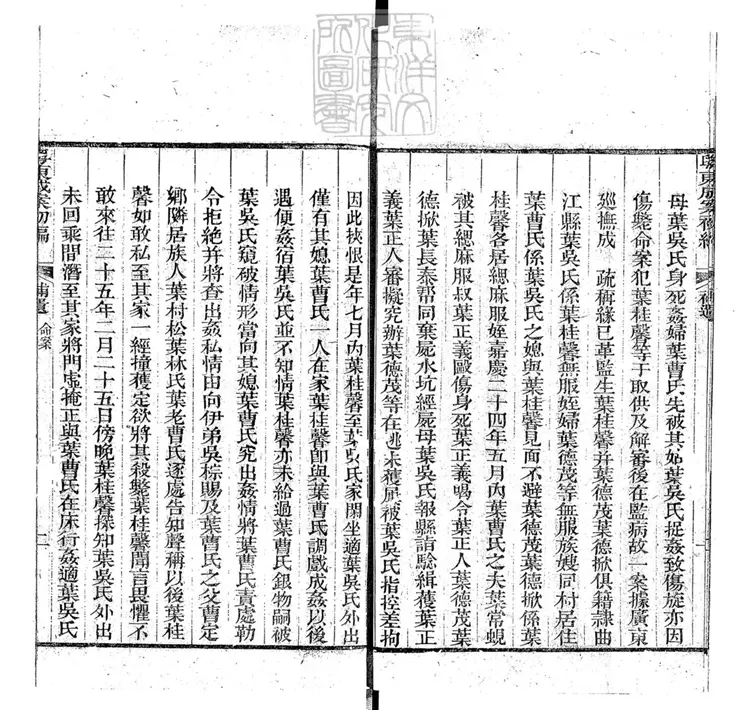 東洋文
化研究
所圖書
粵東成案初編
補遺
母葉吳氏身死姦婦葉曹氏先被其姑葉吳氏捉姦致傷旋亦因
傷斃命案犯葉桂馨等于取供及解審後在監病故一案據廣東
巡撫成 疏稱緣已革監生葉桂馨并葉德茂葉德掀俱籍隸曲
江縣葉吳氏係葉桂馨無服姪婦葉德茂等無服族嫂同村居住
葉曹氏係葉吳氏之媳與葉桂馨見面不避葉德茂葉德掀係葉
桂馨各居緦麻服姪嘉慶二十四年五月內葉曹氏之夫葉常蜆
被其緦麻服叔葉正義毆傷身死葉正義鳴令葉正人葉德茂葉
德掀葉長泰帮同棄屍水坑經屍母葉吳氏報縣詣驗緝獲葉正
義葉正人審擬究辦葉德茂等在逃未獲屢被葉吳氏指控差拘
因此挾恨是年七月內葉桂馨至葉吳氏家閒坐適葉吳氏外出
僅有其媳葉曹氏一人在家葉桂馨卽與葉曹氏調戲成姦以後
遇便姦宿葉吳氏並不知情葉桂馨亦未給過葉曹氏銀物嗣被
葉吳氏窺破情形當向其媳葉曹氏究出姦情將葉曹氏責處勒
令拒絕并將查出姦私情由向伊弟吳粽賜及葉曹氏之父曹定
鄉隣居族人葉村松葉林氏葉老曹氏逐處告知聲稱以後葉桂
馨如敢私至其家一經撞獲定欲將其殺斃葉桂馨聞言畏懼不
敢來往二十五年二月二十五日傍晚葉桂馨探知葉吳氏外出
未回乘間潛至其家將門虛掩正與葉曹氏在床行姦適葉吳氏
粵東成案初編
補遺 命案
二